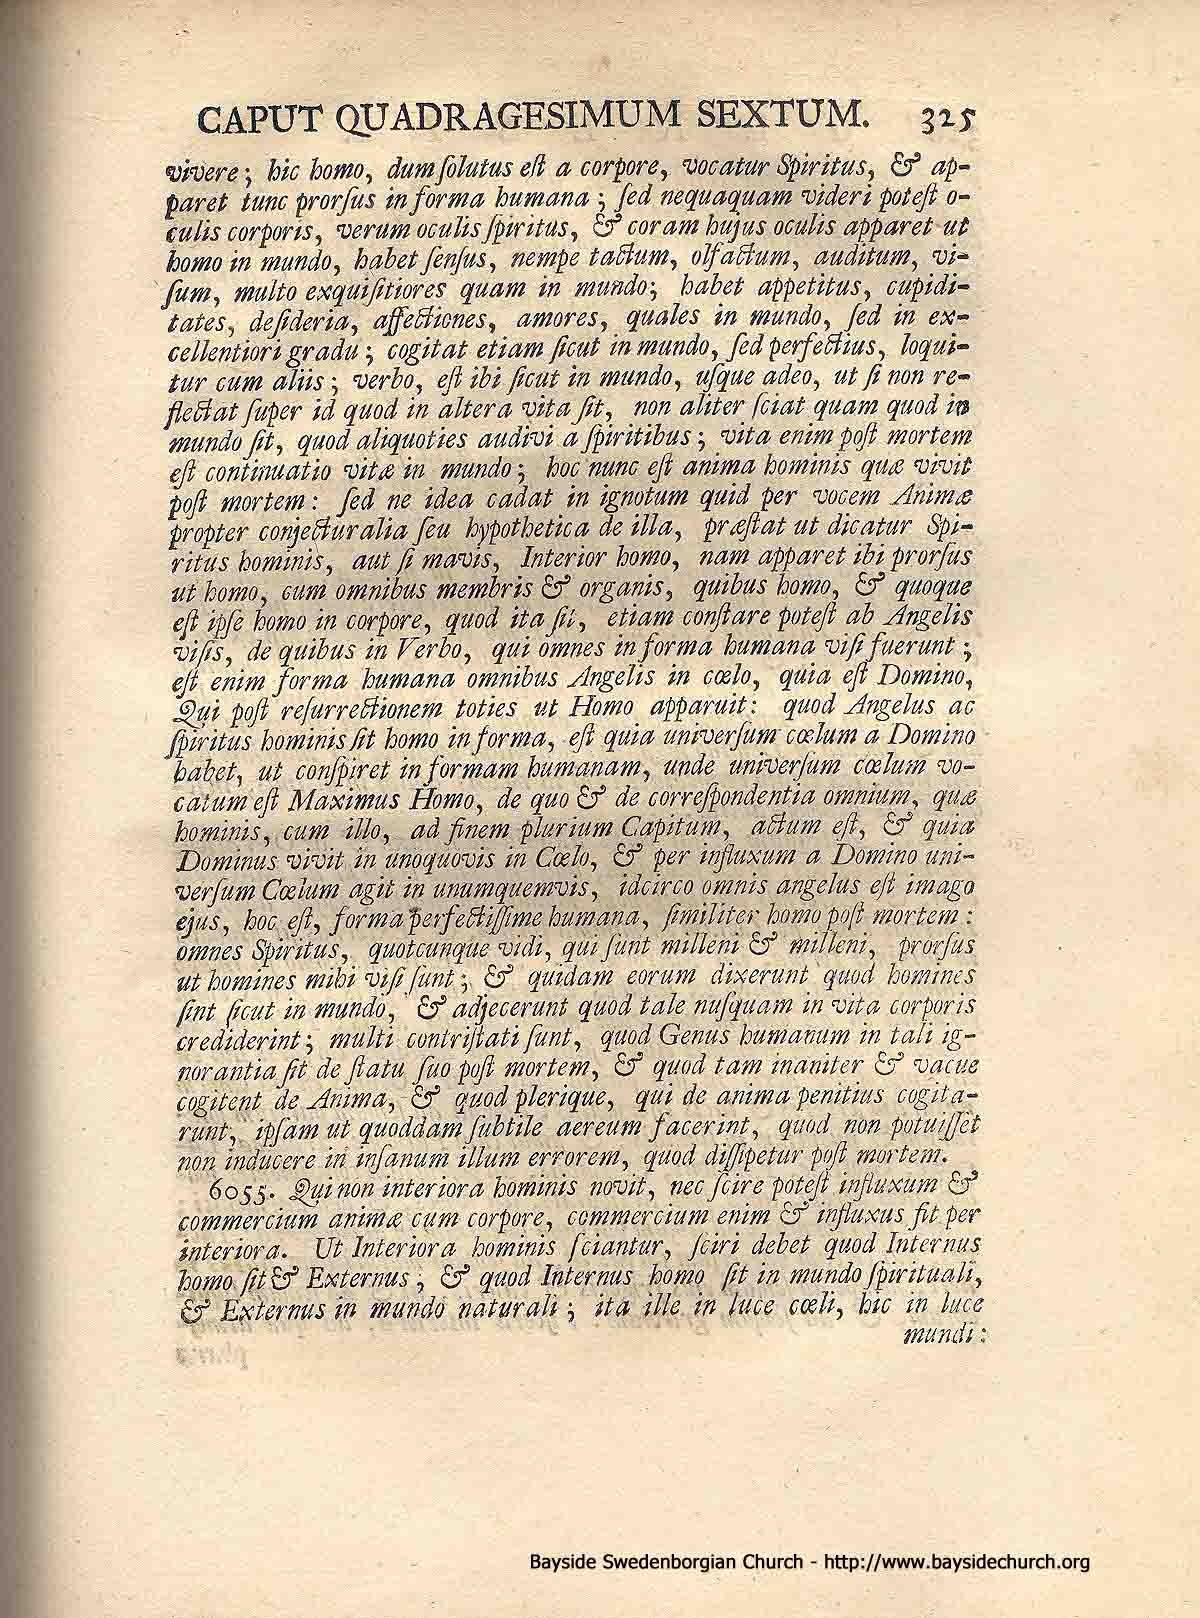 CAPUT QUADRAGESIMUM SEXTUM. 325
vivere; hic homo, dum ſolutus eſt a corpore, vocatur Spiritus, & ap-
paret tunc prorſus in forma humana; ſed nequaquam videri poteſt o-
culis corporis, verum oculis ſpiritus, & coram hujus oculis apparet ut
homo in mundo, habet ſenſus, nempe tactum, olfactum, auditum, vi-
ſum, multo exquiſitiores quam in mundo; habet appetitus, cupidi-
tates, deſideria, affectiones, amores, quales in mundo, ſed in ex-
cellentiori gradu; cogitat etiam ſicut in mundo, ſed perfectius, loqui-
tur cum aliis; verbo, eſt ibi ſicut in mundo, uſque adeo, ut ſi non re-
flectat ſuper id quod in altera vita ſit, non aliter ſciat quam quod in
mundo ſit, quod aliquoties audivi a ſpiritibus; vita enim poſt mortem
eſt continuatio vitæ in mundo; hoc nunc eſt anima hominis quæ vivit
poſt mortem: ſed ne idea cadat in ignotum quid per vocem Animæ
propter conjecturalia ſeu hypothetica de illa, præſtat ut dicatur Spi-
ritus hominis, aut ſi mavis, Interior homo, nam apparet ibi prorſus
ut homo, cum omnibus membris & organis, quibus homo, & quoque
eſt ipſe homo in corpore, quod ita ſit, etiam conſtare poteſt ab Angelis
viſis, de quibus in Verbo, qui omnes in forma humana viſi fuerunt;
eſt enim forma humana omnibus Angelis in cœlo, quia eſt Domino,
Qui poſt reſurrectionem toties ut Homo apparuit: quod Angelus ac
ſpiritus hominis ſit homo in forma, eſt quia univerſum cœlum a Domino
habet, ut conſpiret in formam humanam, unde univerſum cœlum vo-
catum eſt Maximus Homo, de quo & de correſpondentia omnium, quæ
hominis, cum illo, ad finem plurium Capitum, actum eſt, & quia
Dominus vivit in unoquovis in Cœlo, & per influxum a Domino uni-
verſum Cœlum agit in unumquemvis, idcirco omnis angelus eſt imago
ejus, hoc eſt, forma perfectiſſime humana, ſimiliter homo poſt mortem:
omnes Spiritus, quotcunque vidi, qui ſunt milleni & milleni, prorſus
ut homines mihi viſi ſunt; & quidam eorum dixerunt quod homines
ſint ſicut in mundo, & adjecerunt quod tale nuſquam in vita corporis
crediderint; multi contriſtati ſunt, quod Genus humanum in tali ig-
norantia ſit de ſtatu ſuo poſt mortem, & quod tam inaniter & vacue
cogitent de Anima, & quod plerique, qui de anima penitius cogita-
runt, ipſam ut quoddam ſubtile aereum facerint, quod non potuiſſet
non inducere in inſanum illum errorem, quod diſſipetur poſt mortem.
6055. Qui non interiora hominis novit, nec ſcire poteſt influxum &
commercium animæ cum corpore, commercium enim & influxus fit per
interiora. Ut Interiora hominis ſciantur, ſciri debet quod Internus
homo ſit & Externus, & quod Internus homo ſit in mundo ſpirituali,
& Externus in mundo naturali; ita ille in luce cœli, hic in luce
mundi:
Bayside Swedenborgian Church - http://www.baysidechurch.org